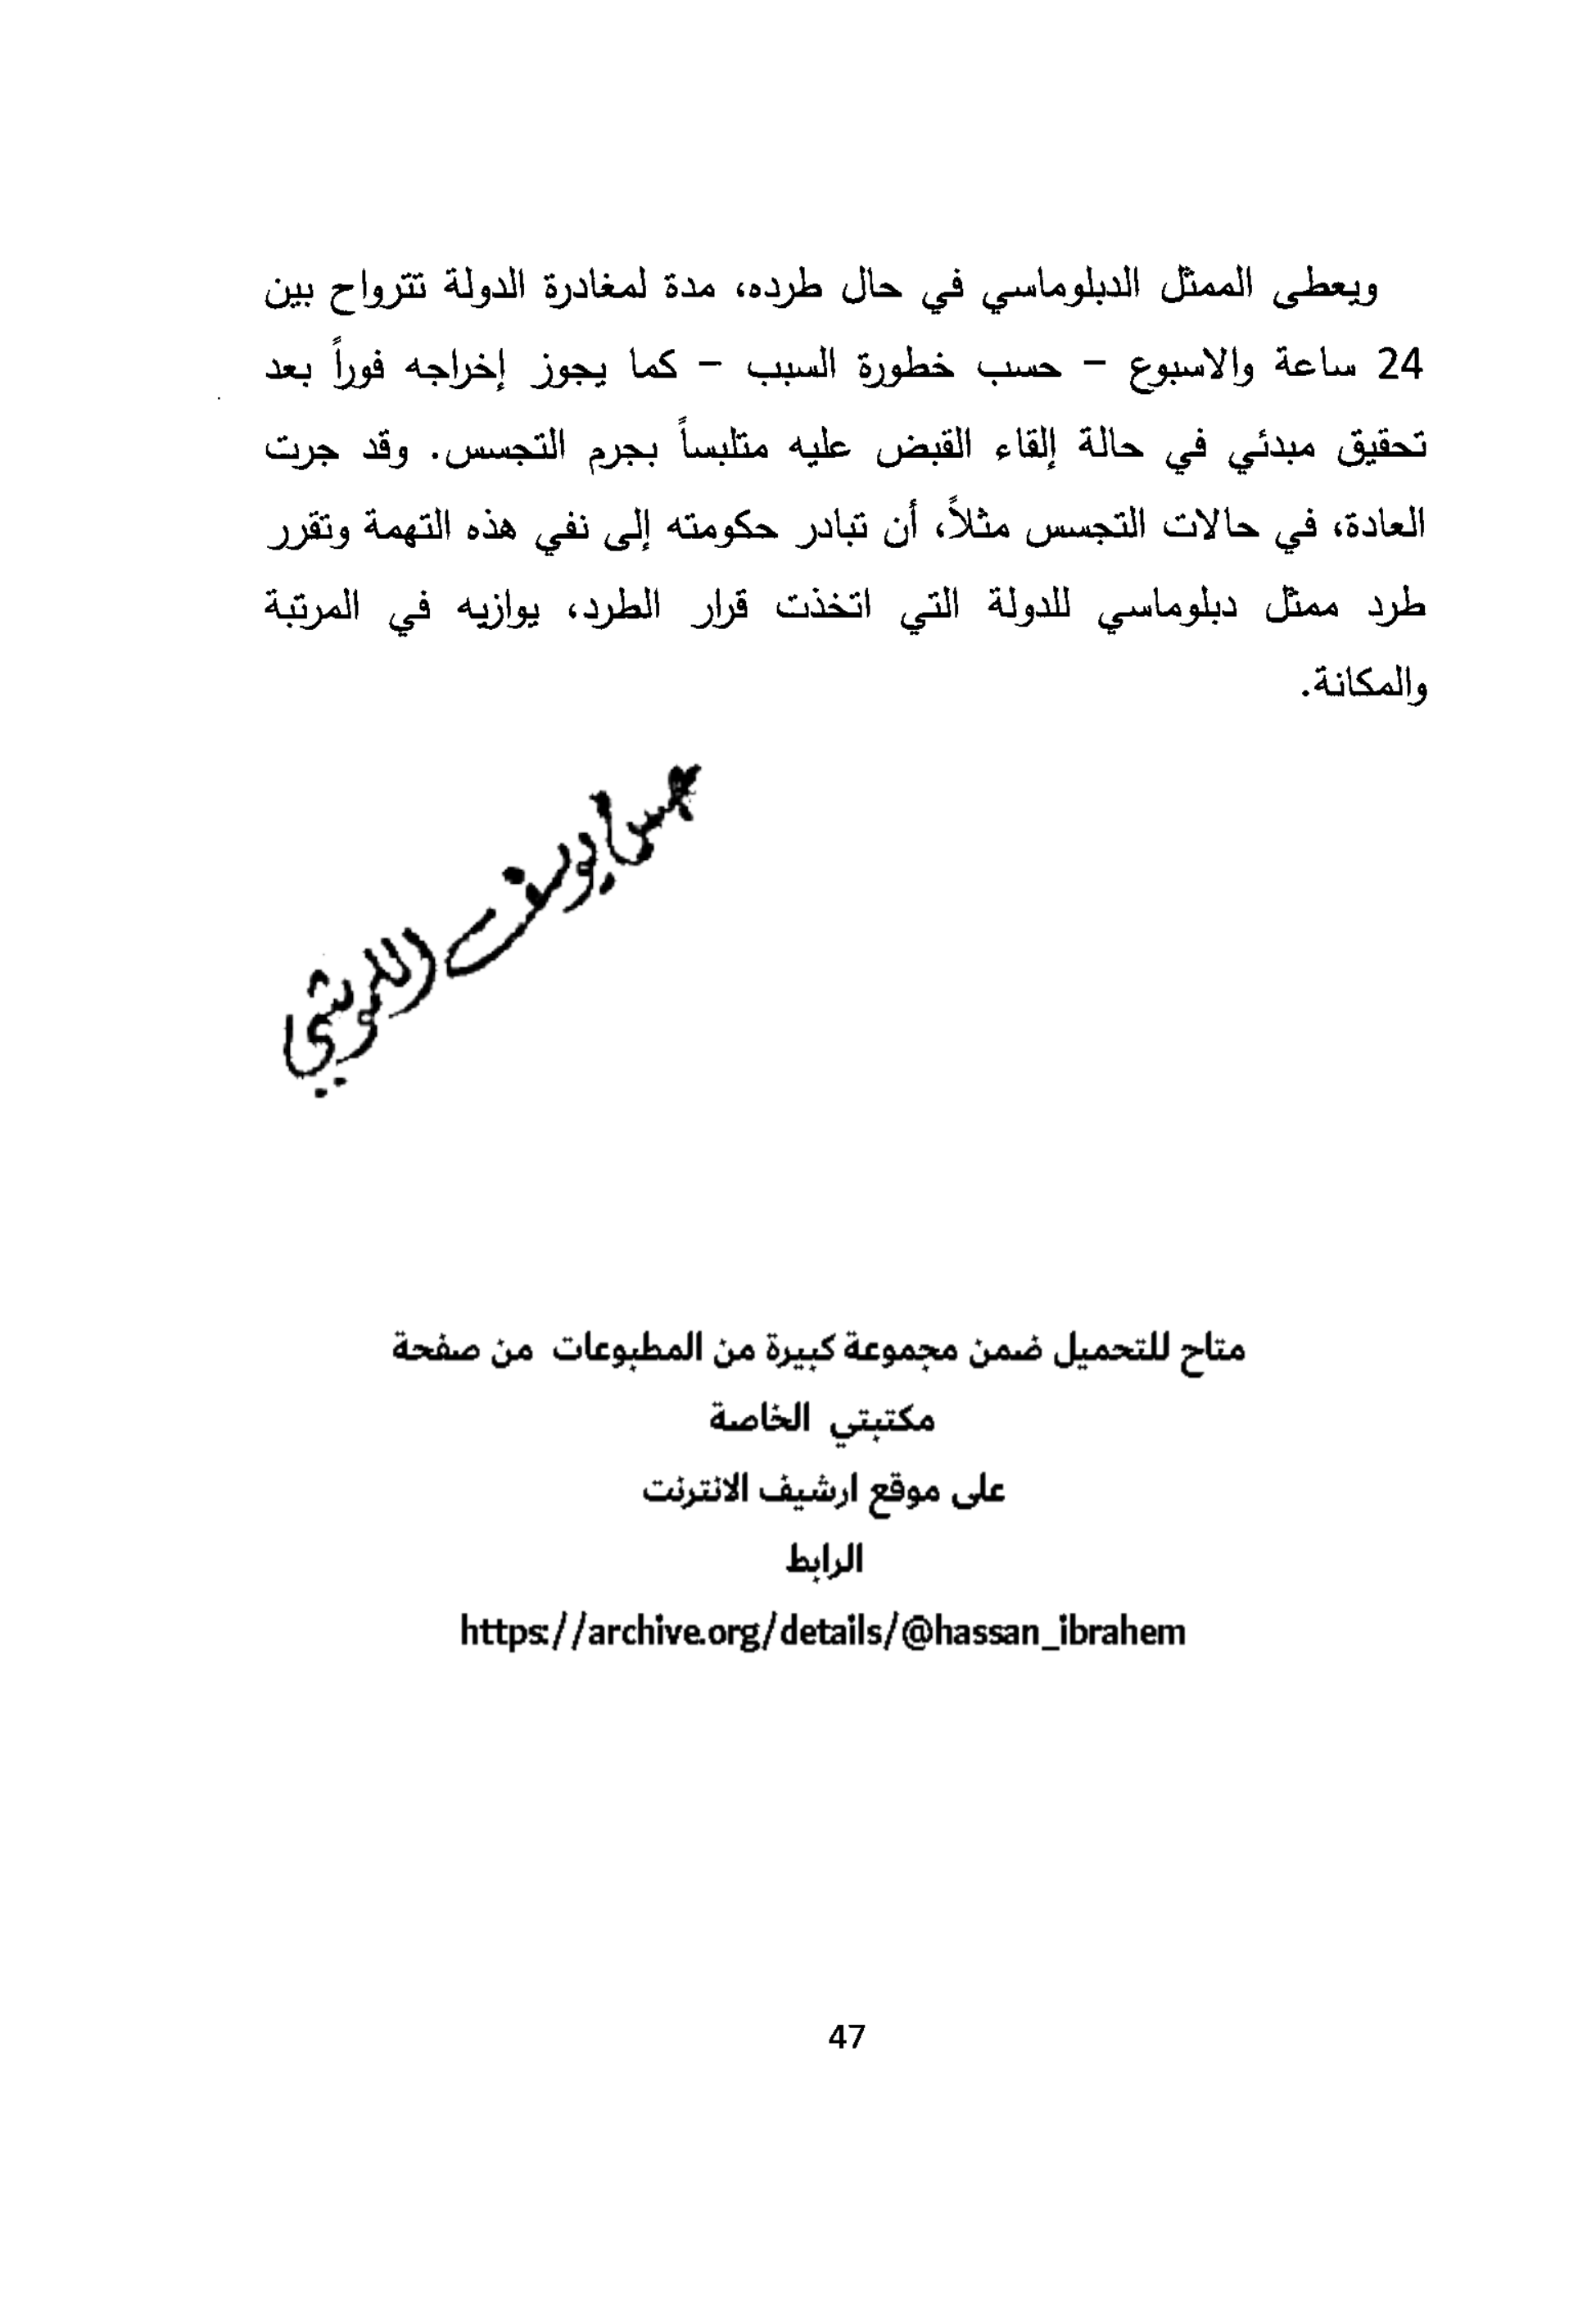 ويعطى الممثل الدبلوماسي في حال طرده، مدة لمغادرة الدولة تترواح بين
24 ساعة والاسبوع – حسب خطورة السبب – كما يجوز إخراجه فوراً بعد
تحقيق مبدئي في حالة إلقاء القبض عليه متلبساً بجرم التجسس. وقد جرت
العادة، في حالات التجسس مثلاً، أن تبادر حكومته إلى نفي هذه التهمة وتقرر
طرد ممثل دبلوماسي للدولة التي اتخذت قرار الطرد، يوازيه في المرتبة
والمكانة.
يوسف
متاح للتحميل ضمن مجموعة كبيرة من المطبوعات من صفحة
مكتبتي الخاصة
على موقع ارشيف الانترنت
الرابط
https://archive.org/details/@hassan_ibrahem
47